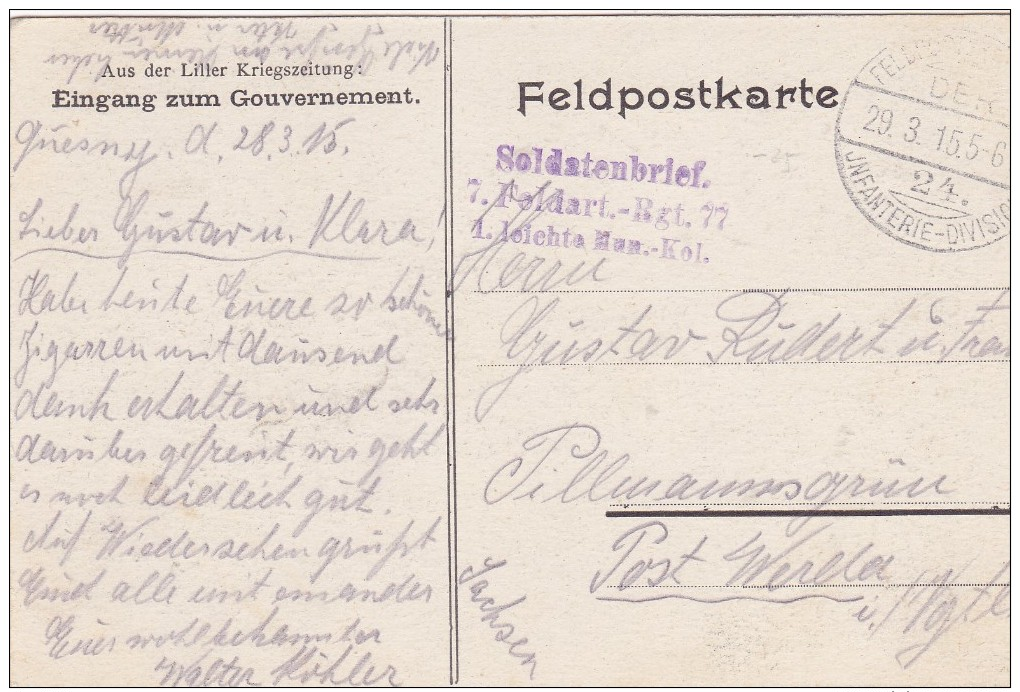 Aus der Liller Kriegszeitung:
Eingang zum Gouvernement.
Quesnoy. d. 28.3.15.
Lieber Gustav u. Klara!
Habe heute Euere so schönen
Zigarren mit dausend
dank erhalten und sehr
darüber gefreut, wir geht
es noch leidlich gut.
Auf Wiedersehen grüßt
Euch alle mit einander
Euer wohlbekannter
Walter Köhler
Feldpostkarte
Soldatenbrief.
7. Feldart.-Rgt. 77
1. leichte Mun.-Kol.
DER
29. 3. 15. 5-6
24.
INFANTERIE-DIVISION
Herrn
Gustav Rudert u. Frau
Tillmannsgrün
Post Werda
i./Vgtl
Sachsen